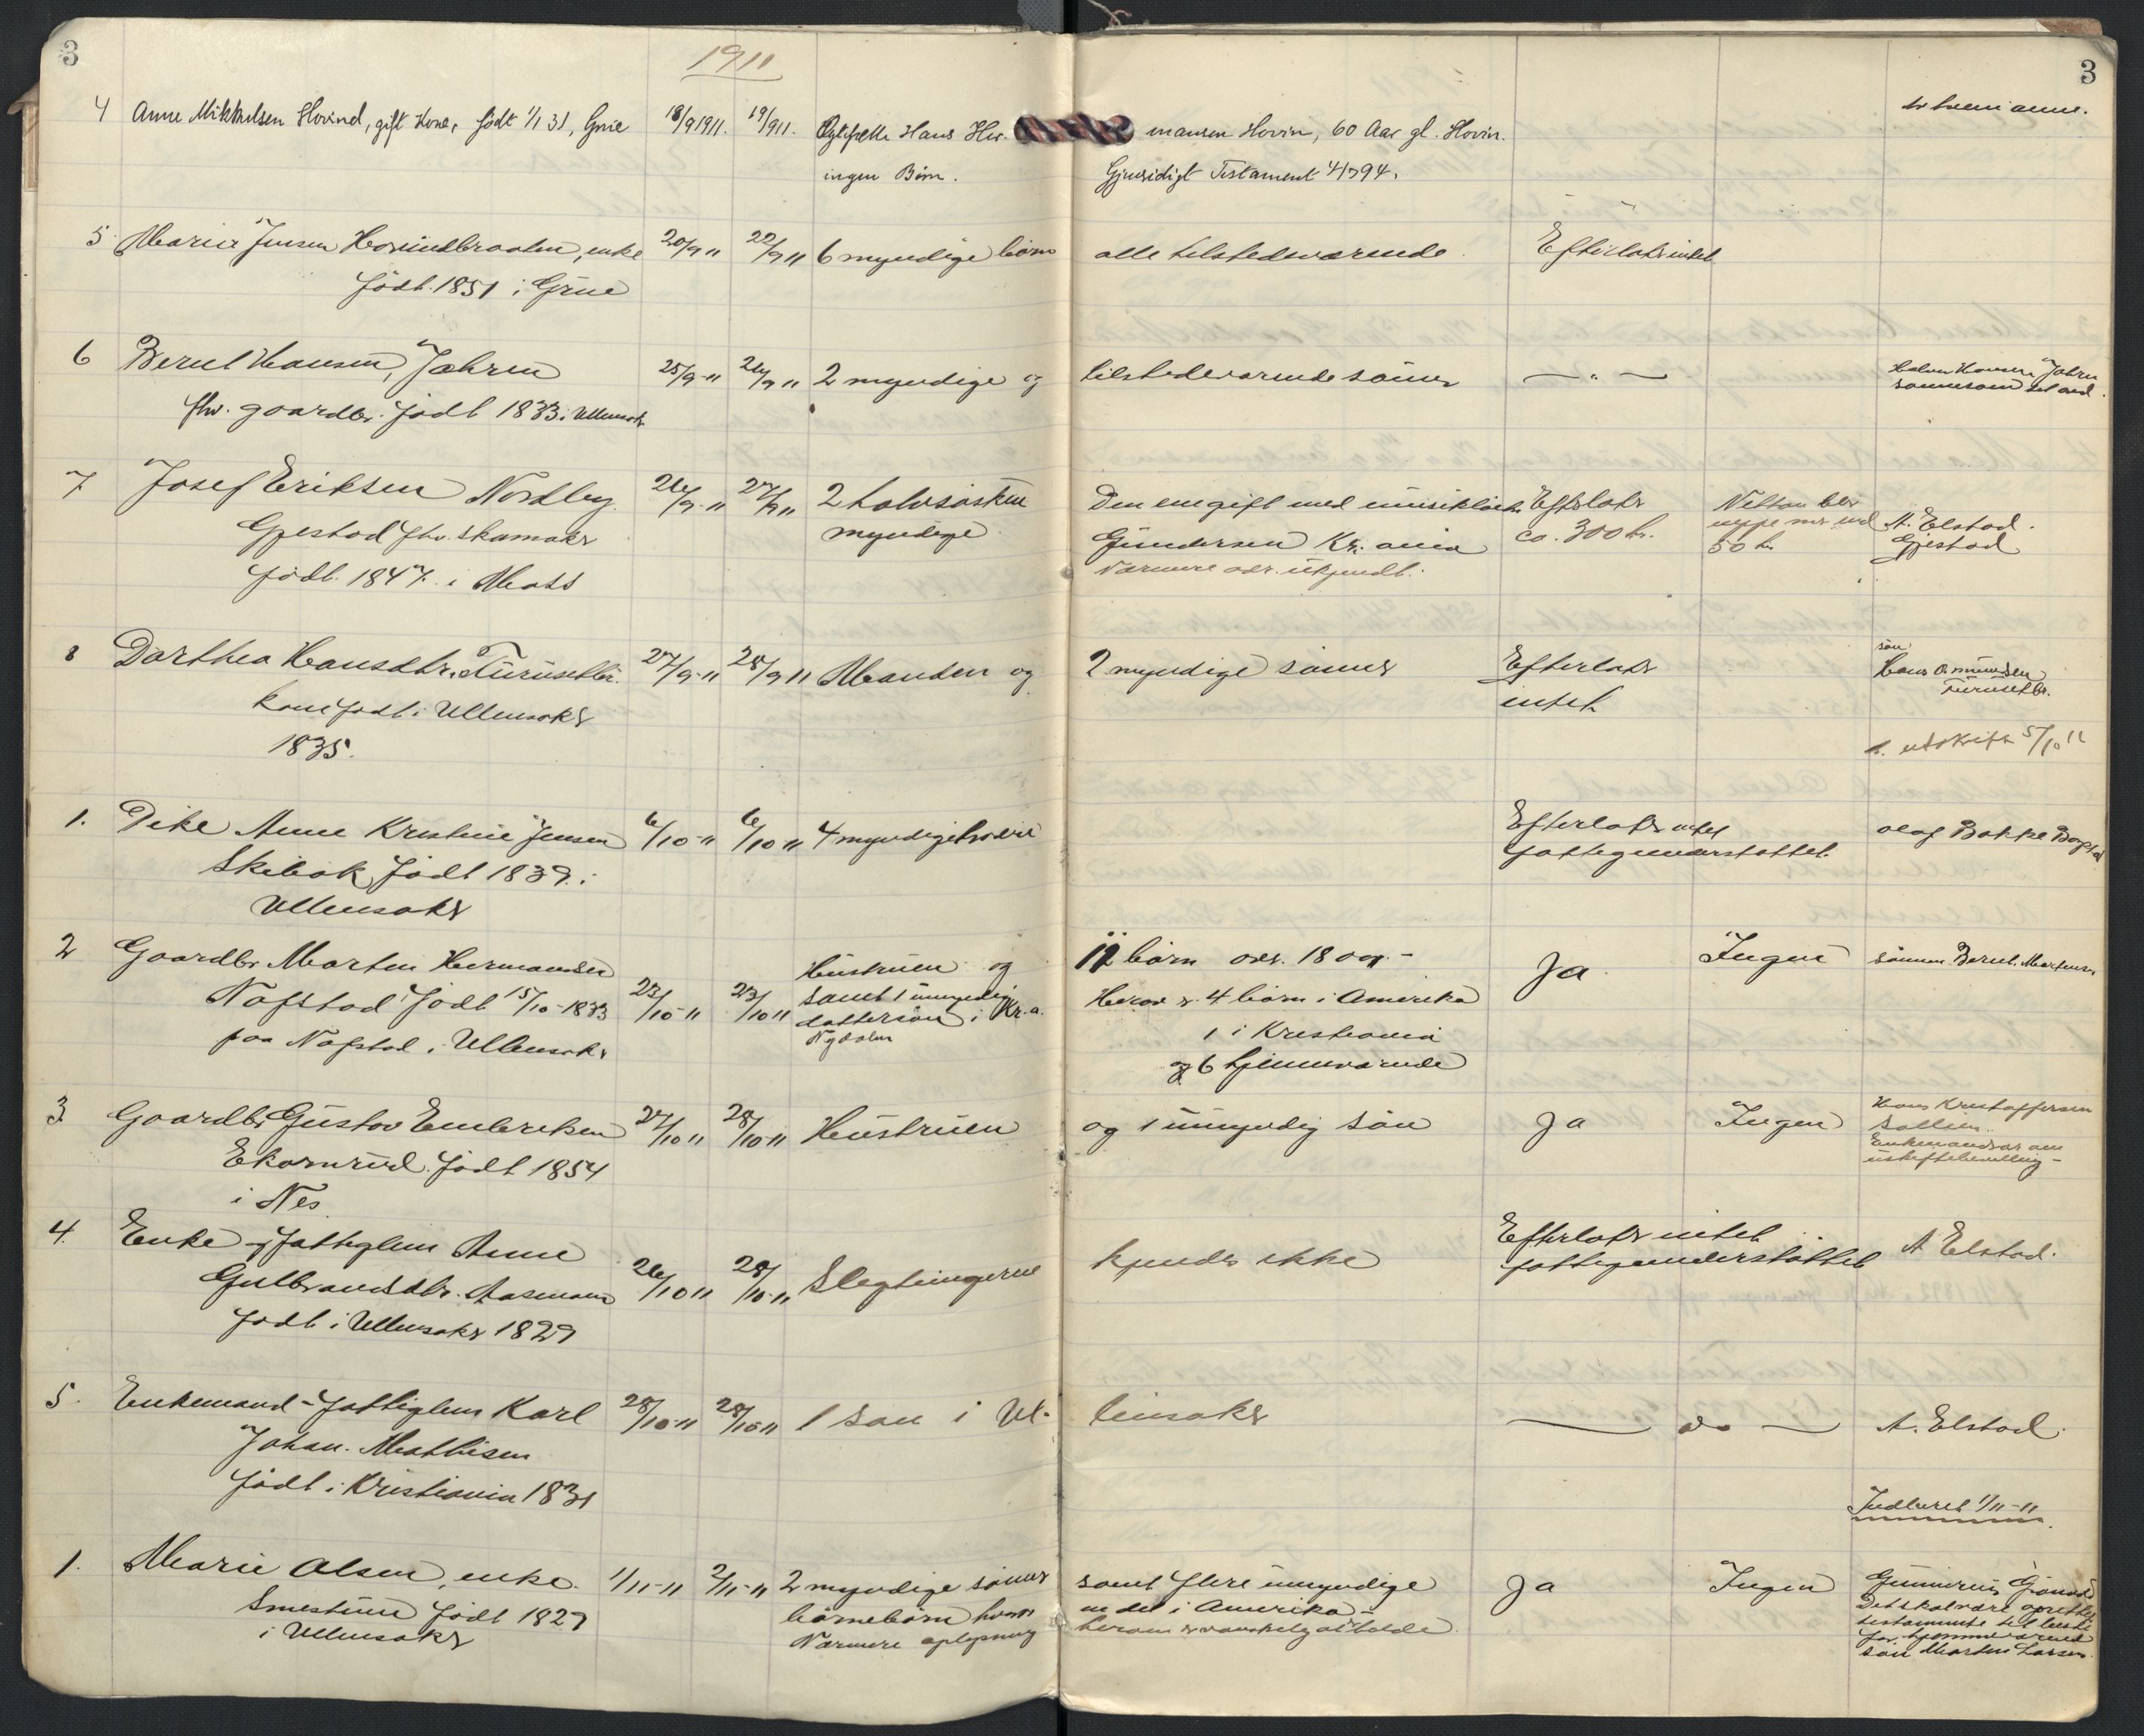 3
1911
3
4 Anne Mikkelsen Hovind, gift Kone, født 1/1 31, Grue 18/9 1911. 19/9 11. Ægtefælle Hans Her- mansen Hovin, 60 Aar gl. Hovin.
ingen Børn. Gjensidigt Testament 4/7 94.
5 Marie Jensen Hovindbraaten, enke 20/9 11 22/9 11 6 myndige børn alle tilstedeværende Efterlot intet
født 1851 i Grue
6 Bernt Hansen, Jahren 25/9-11 26/9 11 2 myndige og tilstedeværende sønner — " — Halvor Hansen Jahren
fhv. gaardbr. født 1833 i Ullensaker
7 Josef Eriksen Nordby 26/9-11 27/9 11 2 halvsøsken Den ene gift med Efterlater A. Elstad.
Gjestad fhv. skomaker myndige Gundersen Kr.ania ca. 300 kr. 50 kr Gjestad
født 1847 i Moss Nærmere adr. ukjendt.
8 Dorthea Hansdtr. Furusetbr. 27/9-11 28/9 11 Manden og 2 myndige sønner Efterlater søn
kone født i Ullensaker intet Hans Amundsen
1835. Furusetbr.
utskrift 5/10 11
1. Pike Anne Kristine Jensen 6/10-11 6/10 11 4 myndige Efterlater intet Olaf Bakke
Skibak født 1839 i fattigunderstøttet
Ullensaker
2 Gaardbr Marten Hermansen Hustruen og 12 børn over 18 aar - Ja Ingen sønnen Bernt Martinsen
Nafstad født 15/10-1833 23/10-11 23/10 11 samt 1 umyndig Herav er 4 børn i Amerika
dattersøn i Kr.a. 1 i Kristiania
paa Nafstad i Ullensaker Nydalen og 6 hjemmeværende
3. Gaardbr Gustav Emberksen 27/10 11 28/10-11 Hustruen og 1 umyndig søn Ja Ingen Hans Kristoffersen
Ekornrud født 1854
i Nes
4. Enke - fattiglem Anne Efterlater intet A Elstad.
Gulbrandsdtr. Aasmoen 26/10 11 28/10-11 Slegtningerne kjendes ikke fattigunderstøttet
født i Ullensaker 1829
5. Enkemand - fattiglem Karl 28/10-11 28/10-11 1 søn i Ul- lensaker — do — A. Elstad.
Johan Mathisen
født i Kristiania 1831
Indberet 1/11-11
1. Marie Olsen, enke. 1/11-11 2/11-11 2 myndige sønner samt flere umyndige Ja Ingen
Smestuen født 1829 børnebørn hvor en del i Amerika -
i Ullensaker Nærmere oplysning herom er vanskelig at
søn Martin Larsen